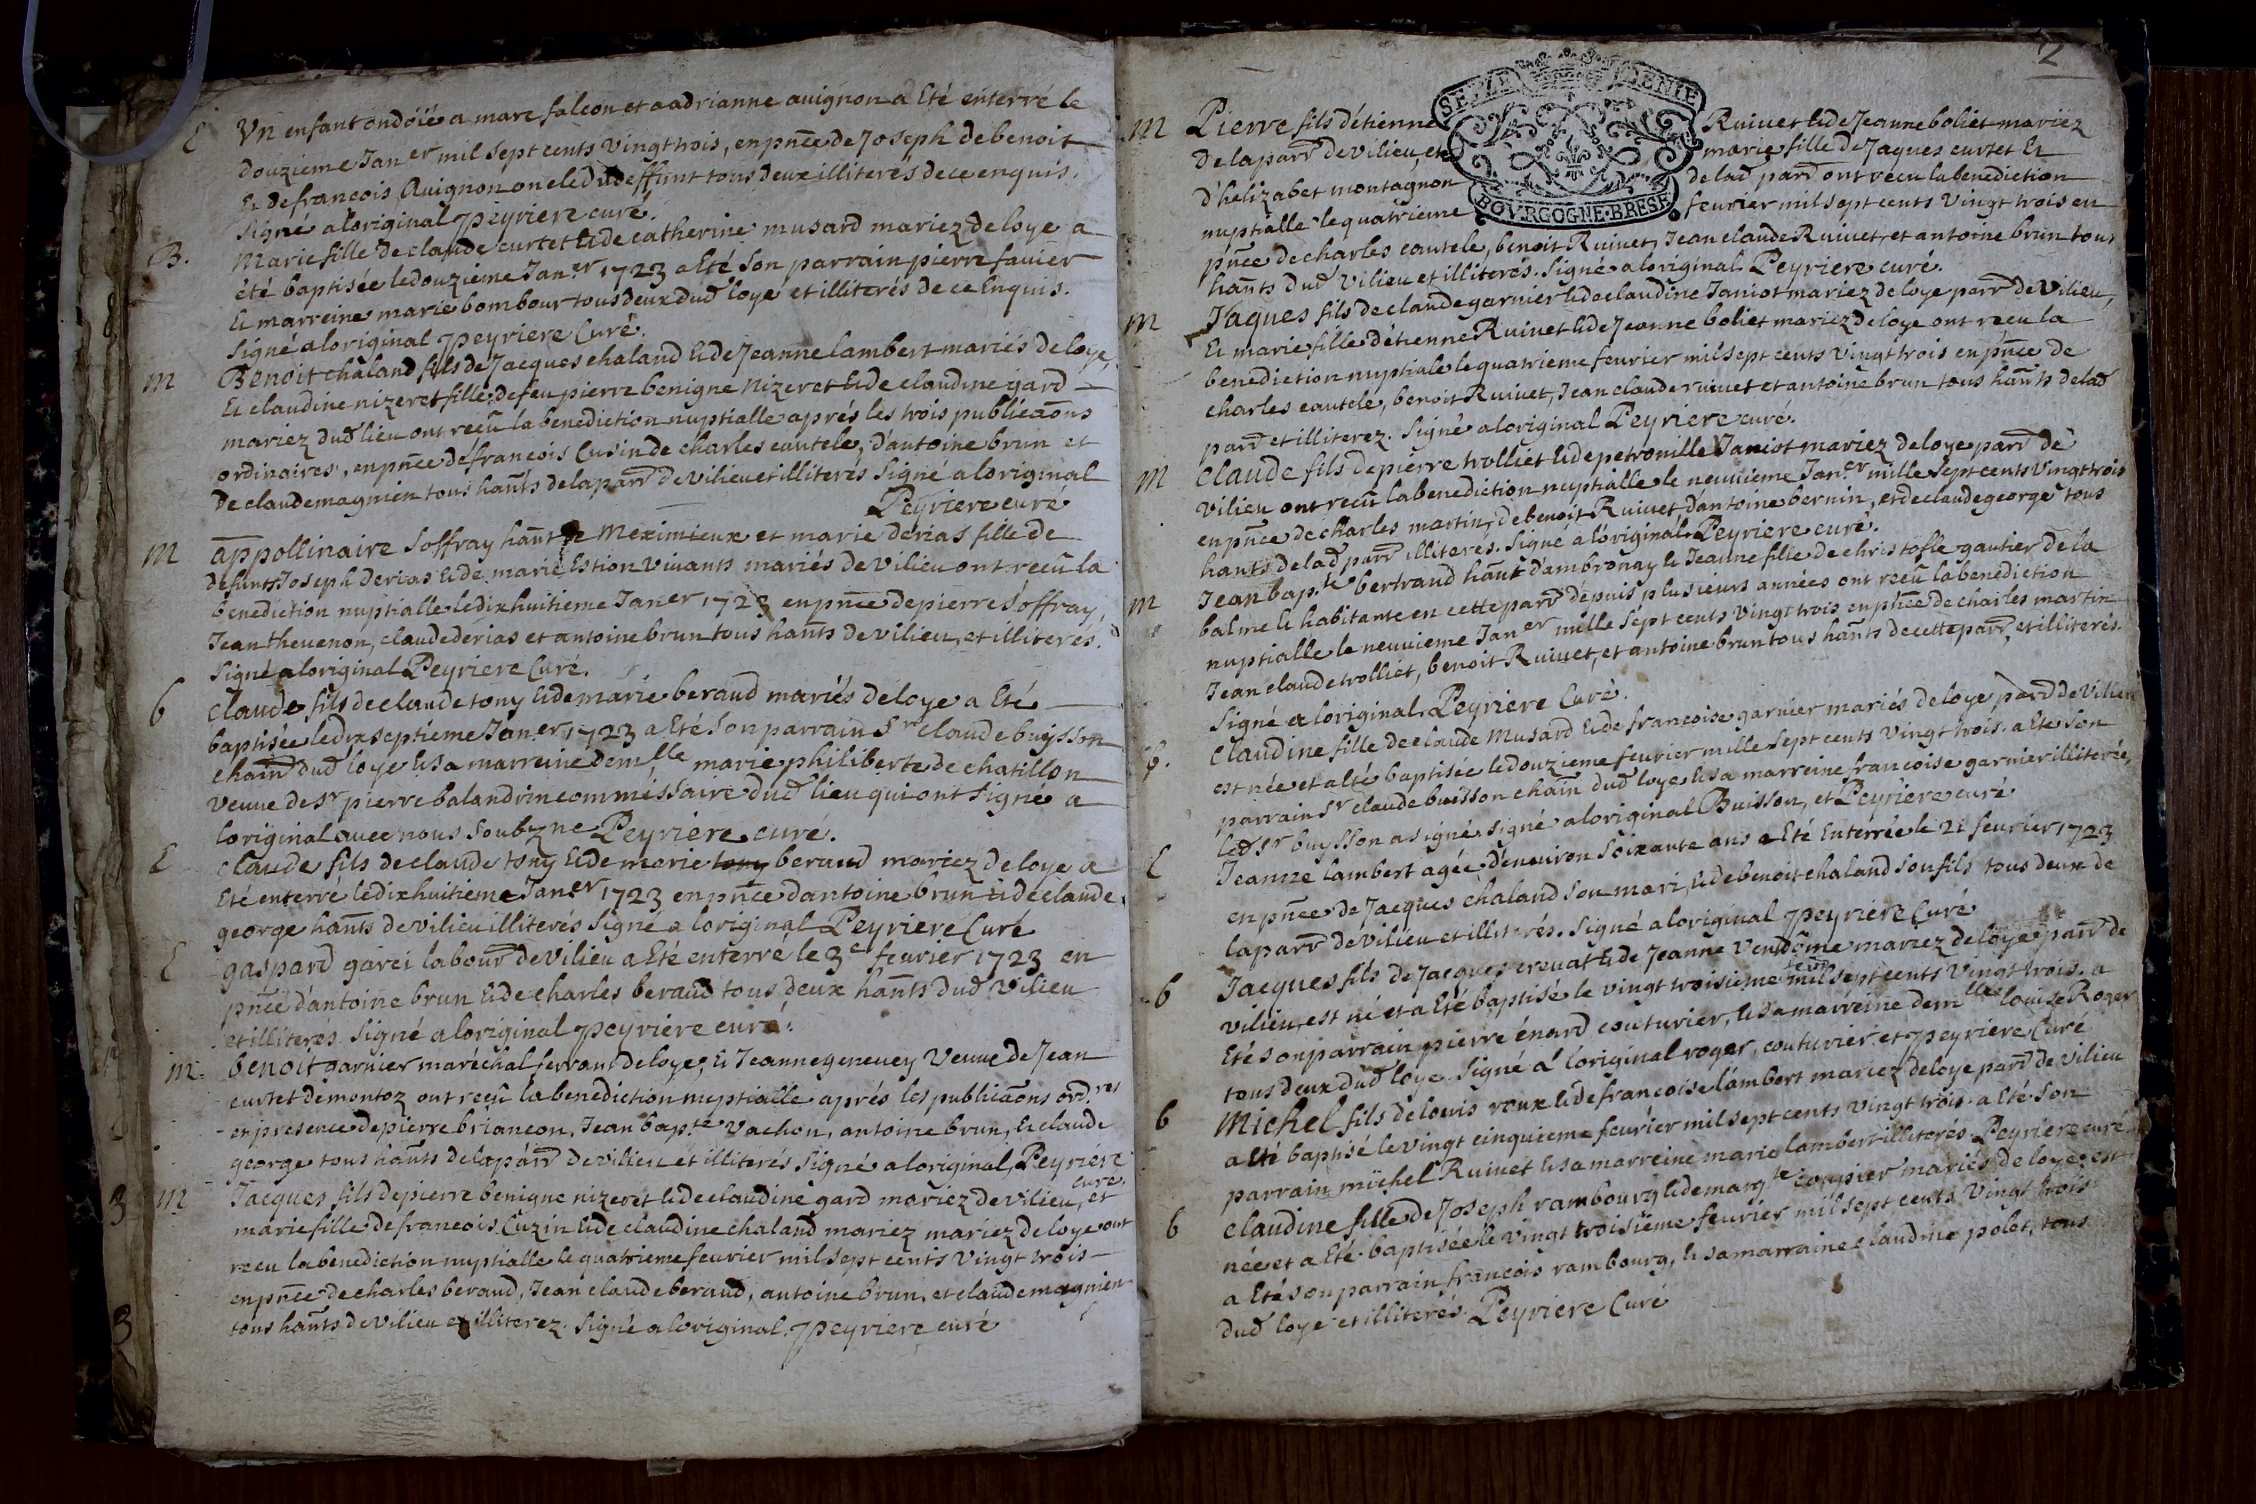 E Un enfant ondoié a marc falcon et a adrianne avignon a Eté enterré le
douzieme Jan.er mil sept cents vingt trois, en pn̄ce de Joseph de benoit
Et de francois Avignon oncle dud deffunt tous deux illiterés de ce enquis.
Signé a loriginal Peyriere curé.
B. Marie fille de claude curtet & de catherine musard mariez de loye a
été baptisée le douzieme Jan.er 1723 a Eté son parrain pierre favier
Et marreine marie bombour tous deux dud loye et illiterés de ce Enquis.
Signé a loriginal Peyriere Curé.
m Benoit chaland fils de Jacques chaland & de Jeanne lambert mariés de loye,
Et claudine nizeret fille de feu pierre benigne nizeret & de claudine gard
mariez dud lieu ont reçû la benediction nuptialle aprés les trois publicaōns
ordinaires, en pn̄ce de francois Cusin de charles cautele, d'antoine brun et
de claude magnien tous han̄ts de la parr de vilieu et illiterés Signé a loriginal
Peyriere curé
m appollinaire Soffray han̄t de Meximieux et marie derias fille de
defunts Joseph derias & de marie Estion vivants mariés de vilieu ont reçû la
benediction nuptialle le dixhuitieme Jan.er 1723 en pn̄ce de pierre Soffray,
Jean thevenon, claude derias et antoine brun tous han̄ts de vilieu, et illiterés.
Signé a loriginal Peyriere Curé.
b Claude fils de claude tony & de marie beraud mariés de loye a Eté
baptisée le dix septieme Jan.er 1723 a Eté son parrain Sr claude buysson
chain̄ dud loye & sa marreine demlle marie philiberte de chatillon
veuve de Sr pierre balandrin commissaire dud lieu qui ont signé a
loriginal avec nous soubzne Peyriere curé.
E Claude fils de claude tony & de marie tony beraud mariez de loye a
Eté enterre le dixhuitieme Jan.er 1723 en pn̄ce d'antoine brun & de claude
george han̄ts de vilieu illiterés Signé a loriginal Peyriere Curé
E gaspard garci labour de vilieu a Eté enterré le 3e fevrier 1723 en
pn̄ce d'antoine brun & de charles beraud tous deux han̄ts dud vilieu
et illiterés. Signé a loriginal Peyriere curé.
m. benoit garnier maréchal ferrant de loye, & Jeanne genevey Veuve de Jean
curtet de montoz ont reçû la benediction nuptialle aprés les publicaōns ord.res
en presence de pierre briancon, Jean bap.te Vachon, antoine brun, & claude
george tous han̄ts de la párr de vilieu et illiterés Signé a loriginal, Peyriere
curé
m Jacques fils de pierre benigne nizeret & de claudine gard mariez de vilieu, et
marie fille de francois Cuzin & de claudine chaland mariez mariez de loye ont
recu la benediction nuptialle le quatrieme fevrier mil sept cents vingt trois
en pn̄ce de charles beraud, Jean claude beraud, antoine brun, et claude magnien
tous han̄ts de vilieu et illiterez. Signé a loriginal. Peyriere curé
3
3
2
SEIZE DENIE
BOVRGOGNE·BRESE
m Pierre fils d'étienne Ruivet & de Jeanne boliet mariez
de la parr de vilieu, et marie fille de Jaques curtet Et
d'helizabet montagnon de lad parr ont reçu la benediction
nuptialle le quatrieme fevrier mil sept cents vingt trois en
pn̄ce de charles cautele, benoit Ruivet, Jean claude Ruivet, et antoine brun tous
han̄ts dud vilieu et illiterés. Signé a loriginal Peyriere curé.
m Jaques fils de claude garnier & de claudine Janiot mariez de loye parr de vilieu,
Et marie fille d'étienne Ruivet & de Jeanne boliet mariez de loye ont reçu la
benediction nuptiale le quatrieme fevrier mil sept cents vingt trois en pn̄ce de
charles cautele, benoit Ruivet, Jean claude ruivet et antoine brun tous han̄ts delad
parr et illiterez. Signé a loriginal Peyriere curé.
m Claude fils de pierre trolliet & de petronille Janiot mariez de loye parr de
vilieu ont reçû la benediction nuptialle le neuvieme Jan.er mille sept cents vingt trois
en pn̄ce de charles martin, de benoit Ruivet d'antoine bernin, et de claude george tous
han̄ts de lad parr illiterés. Signé a l'original Peyriere curé.
m Jean bap.te bertrand han̄t d'ambronay & Jeanne fille de christofle gautier de la
balme & habitante en cette parr depuis plusieurs années ont reçû la benediction
nuptialle le neuvieme Jan.er mille sept cents vingt trois en pn̄ce de charles martin
Jean claude trolliet, benoit Ruivet, et antoine brun tous han̄ts de cette parr, et illiterés.
Signé a loriginal Peyriere Curé.
b. Claudine fille de claude Musard & de francoise garnier mariés de loye parr de vilieu
est née et a Eté baptisée le douzieme fevrier mille sept cents vingt trois. a Eté son
parrain Sr claude buisson chain̄ dud loye & sa marreine francoise garnier illiterée,
led Sr buysson a signé. signé a loriginal Buisson, et Peyriere curé
E Jeanne lambert agée d'environ soixante ans a Eté Enterrée le 21 fevrier 1723
en pn̄ce de Jacques chaland son mari, & de benoit chaland son fils tous deux de
la parr de vilieu et illiterés. Signé a loriginal Peyriere Curé
b Jacques fils de Jacques crevat & de Jeanne Vendôme mariez de loye parr de
vilieu, est né et a Eté baptisé le vingt troisieme fevr mil sept cents vingt trois. a
Eté son parrain pierre énard couturier, & sa marreine demlle louise Roger
tous deux dud loye. Signé à l'original roger, couturier, et Peyriere Curé
b Michel fils de louis roux & de francoise lambert mariez de loye parr de vilieu
a Eté baptisé le vingt cinquieme fevrier mil sept cents vingt trois. a Eté son
parrain michel Ruivet & sa marreine marie lambert illiterés. Peyriere curé
b Claudine fille de Joseph rambourg & de marg.te mariés de loye est
née et a Eté baptisée le vingt troisieme fevrier mil sept cents vingt trois
a Eté son parrain francois rambourg, & sa marraine claudine polet, tous
dud loye et illiterés. Peyriere Curé